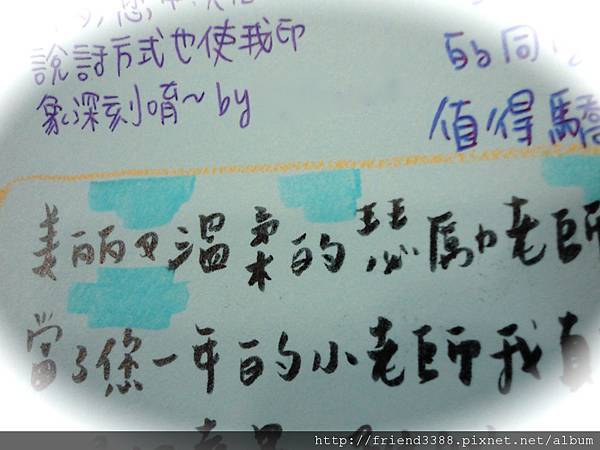 說話方式也使我印
象深刻唷~by
的同
值得驕
美丽又溫柔的瑟勵老師
當了您一年的小老師我真
http://friend3388.pixnet.net/album